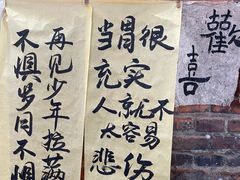 歡喜
当胃很
充实
人就不
太容易
悲伤
再见少年拉满
不惧岁月不惧